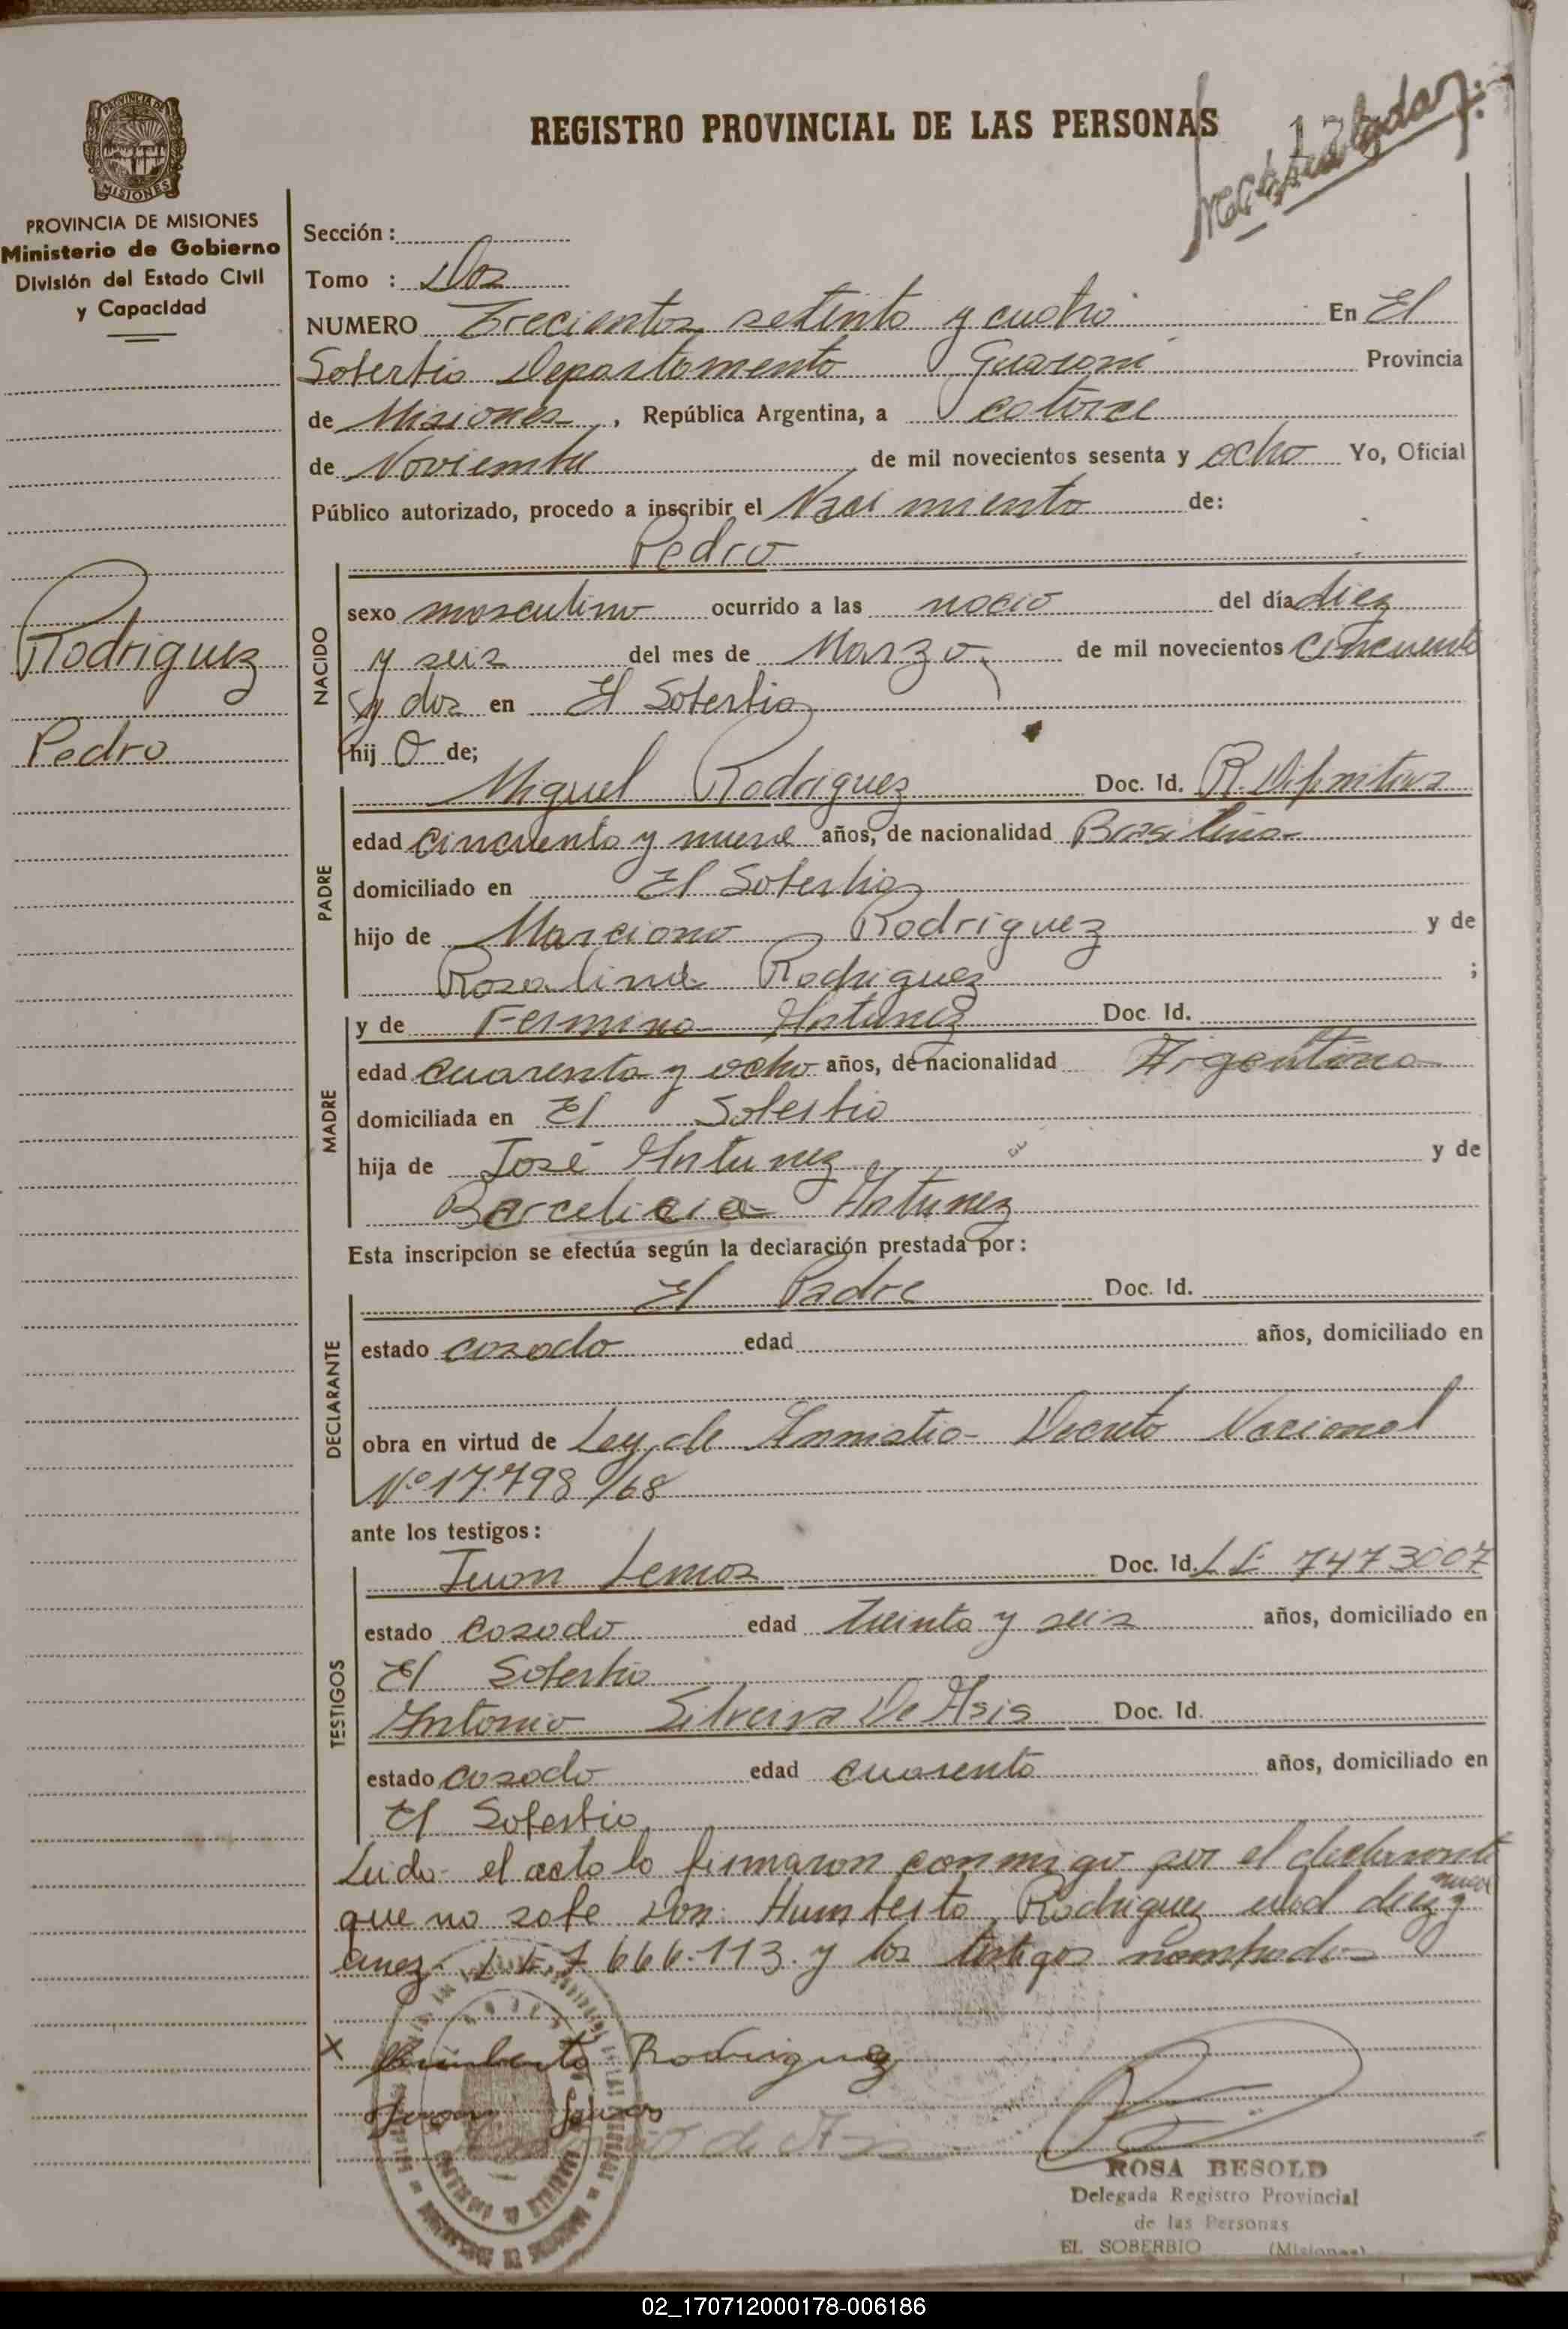 REGISTRO PROVINCIAL DE LAS PERSONAS
PROVINCIA DE
MISIONES
PROVINCIA DE MISIONES
Ministerio de Gobierno
División del Estado Civil
y Capacidad
Sección :
Tomo : Dos
NUMERO Trecientos setenta y cuatro En El
Soberbio Departamento Guarani Provincia
de Misiones , República Argentina, a catorce
de Noviembre de mil novecientos sesenta y ocho Yo, Oficial
Público autorizado, procedo a inscribir el Nacimiento de:
Pedro
Rodriguez
Pedro
NACIDO
sexo masculino ocurrido a las del día diez
y seis del mes de Marzo de mil novecientos cincuenta
y dos en El Soberbio
hij o de;
PADRE
Miguel Rodriguez Doc. Id. R. Difinitiva
edad cincuenta y nueve años, de nacionalidad Brasilina
domiciliado en El Soberbio
hijo de Marciano Rodriguez y de
Rosalina Rodriguez ;
MADRE
y de Fermina Antunez Doc. Id.
edad cuarenta y ocho años, de nacionalidad Argentina
domiciliada en El Soberbio
hija de José Antunez y de
Barcelicia Antunez
Esta inscripcion se efectúa según la declaración prestada por :
DECLARANTE
El Padre Doc. Id.
estado casado edad años, domiciliado en
obra en virtud de Ley de Amnistia Decreto Nacional
Nº 17.798/68
ante los testigos :
TESTIGOS
Juan Lemos Doc. Id. L E 7473007
estado casado edad treinta y seis años, domiciliado en
El Soberbio
Antonio Silveira De Asis Doc. Id.
estado casado edad cuarenta años, domiciliado en
El Soberbio
Leido el acta lo firmaron conmigo por el declarante
que no sabe Don: Humberto Rodriguez edad diez y nueve
L E 7 666.113. y los testigos nombrados
x Humberto Rodriguez
Juan Lemos
ROSA BESOLD
Delegada Registro Provincial
de las Personas
EL SOBERBIO (Misiones)
02_170712000178-006186